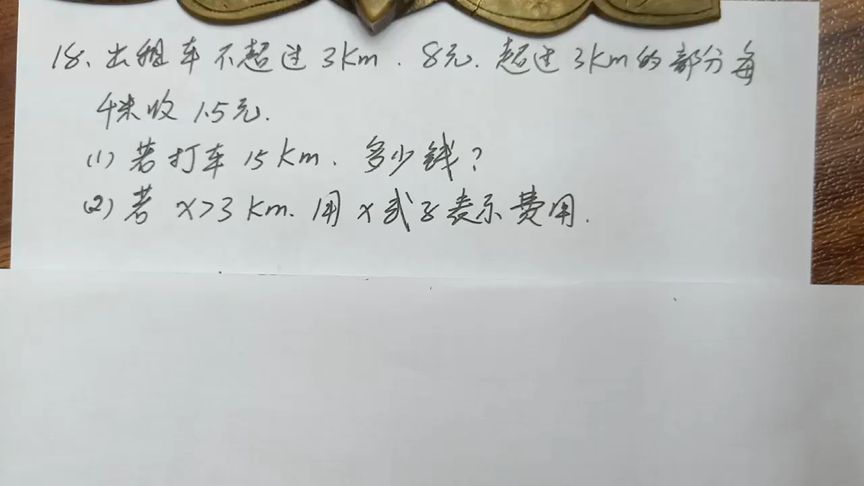 18、出租车不超过3km.8元.超过3km的部分每
千米收1.5元.
(1)若打车15km.多少钱?
(2)若x>3km.用x式子表示费用.